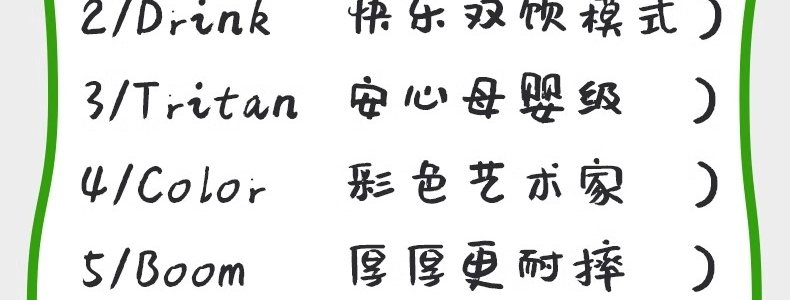 2/Drink 快乐双饮模式)
3/Tritan 安心母婴级 )
4/Color 彩色艺术家 )
5/Boom 厚厚更耐摔 )